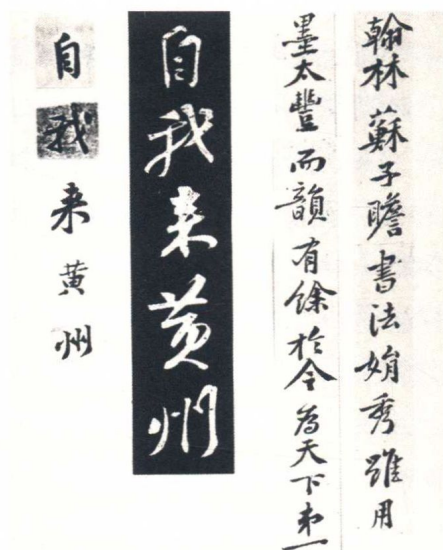 翰林蘇子瞻書法娟秀雖用
墨太豐而韻有餘於今為天下第一
自我来黄州
自我来黄州